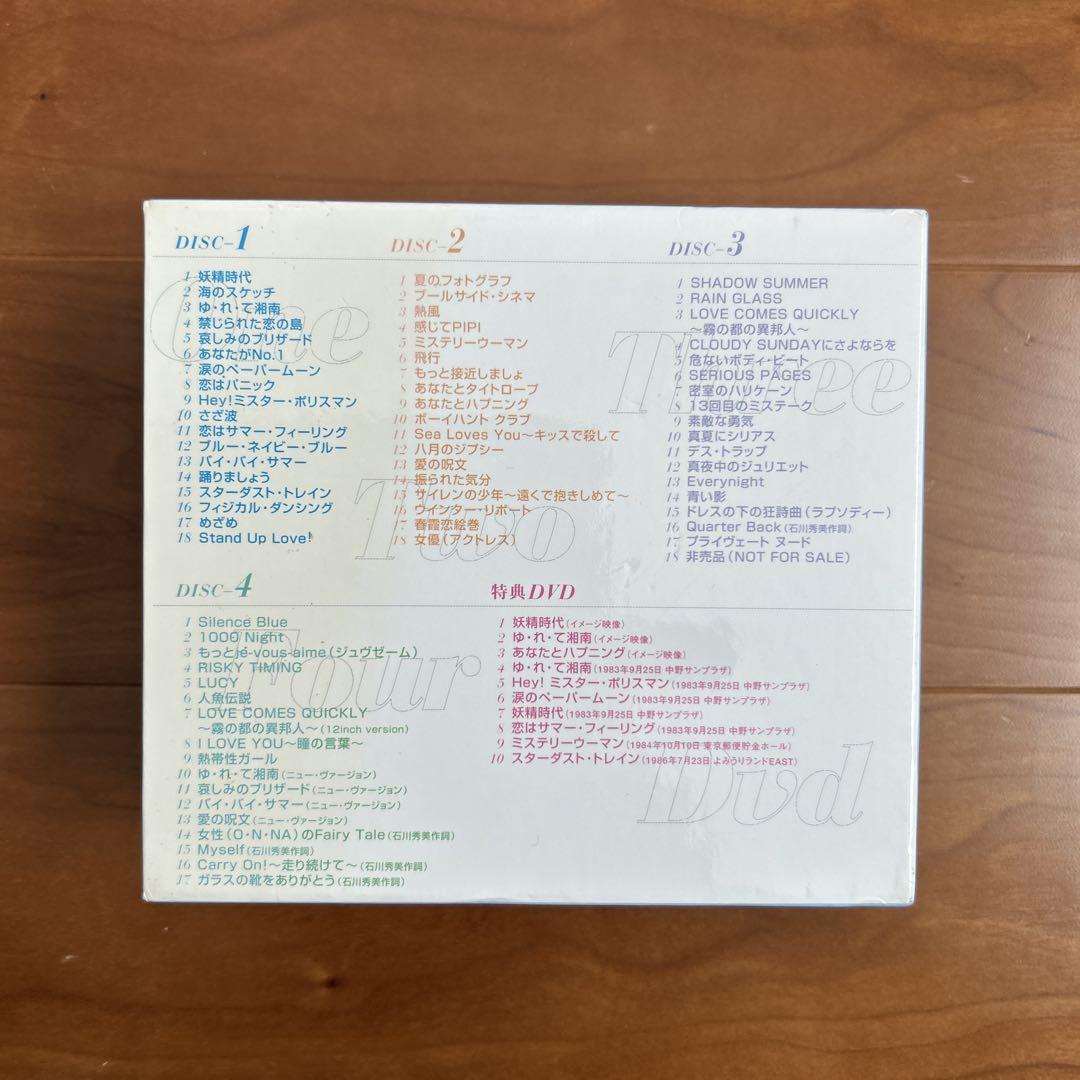 DISC-1
1 妖精時代
2 海のスケッチ
3 ゆ・れ・て湘南
4 禁じられた恋の島
5 哀しみのブリザード
6 あなたがNo.1
7 涙のペーパームーン
8 恋はパニック
9 Hey!ミスター・ポリスマン
10 さざ波
11 恋はサマー・フィーリング
12 ブルー・ネイビー・ブルー
13 バイ・バイ・サマー
14 踊りましょう
15 スターダスト・トレイン
16 フィジカル・ダンシング
17 めざめ
18 Stand Up Love!
One
DISC-2
1 夏のフォトグラフ
2 プールサイド・シネマ
3 熱風
4 感じてPIPI
5 ミステリーウーマン
6 飛行
7 もっと接近しましょ
8 あなたとタイトロープ
9 あなたとハプニング
10 ボーイハント クラブ
11 Sea Loves You〜キッスで殺して
12 八月のジプシー
13 愛の呪文
14 振られた気分
15 サイレンの少年〜遠くで抱きしめて〜
16 ウインター・リポート
17 春霞恋絵巻
18 女優(アクトレス)
Two
DISC-3
1 SHADOW SUMMER
2 RAIN GLASS
3 LOVE COMES QUICKLY
〜霧の都の異邦人〜
4 CLOUDY SUNDAYにさよならを
5 危ないボディ・ビート
6 SERIOUS PAGES
7 密室のハリケーン
8 13回目のミステーク
9 素敵な勇気
10 真夏にシリアス
11 デス・トラップ
12 真夜中のジュリエット
13 Everynight
14 青い影
15 ドレスの下の狂詩曲(ラプソディー)
16 Quarter Back(石川秀美作詞)
17 プライヴェート ヌード
18 非売品(NOT FOR SALE)
Three
DISC-4
1 Silence Blue
2 1000 Night
3 もっとje-vous-aime(ジュヴゼーム)
4 RISKY TIMING
5 LUCY
6 人魚伝説
7 LOVE COMES QUICKLY
〜霧の都の異邦人〜(12inch version)
8 I LOVE YOU〜瞳の言葉〜
9 熱帯性ガール
10 ゆ・れ・て湘南(ニュー・ヴァージョン)
11 哀しみのブリザード(ニュー・ヴァージョン)
12 バイ・バイ・サマー(ニュー・ヴァージョン)
13 愛の呪文(ニュー・ヴァージョン)
14 女性(O・N・NA)のFairy Tale(石川秀美作詞)
15 Myself(石川秀美作詞)
16 Carry On!〜走り続けて〜(石川秀美作詞)
17 ガラスの靴をありがとう(石川秀美作詞)
Four
特典DVD
1 妖精時代(イメージ映像)
2 ゆ・れ・て湘南(イメージ映像)
3 あなたとハプニング(イメージ映像)
4 ゆ・れ・て湘南(1983年9月25日 中野サンプラザ)
5 Hey! ミスター・ポリスマン(1983年9月25日 中野サンプラザ)
6 涙のペーパームーン(1983年9月25日 中野サンプラザ)
7 妖精時代(1983年9月25日 中野サンプラザ)
8 恋はサマー・フィーリング(1983年9月25日 中野サンプラザ)
9 ミステリーウーマン(1984年10月10日 東京郵便貯金ホール)
10 スターダスト・トレイン(1986年7月23日 よみうりランドEAST)
Dvd